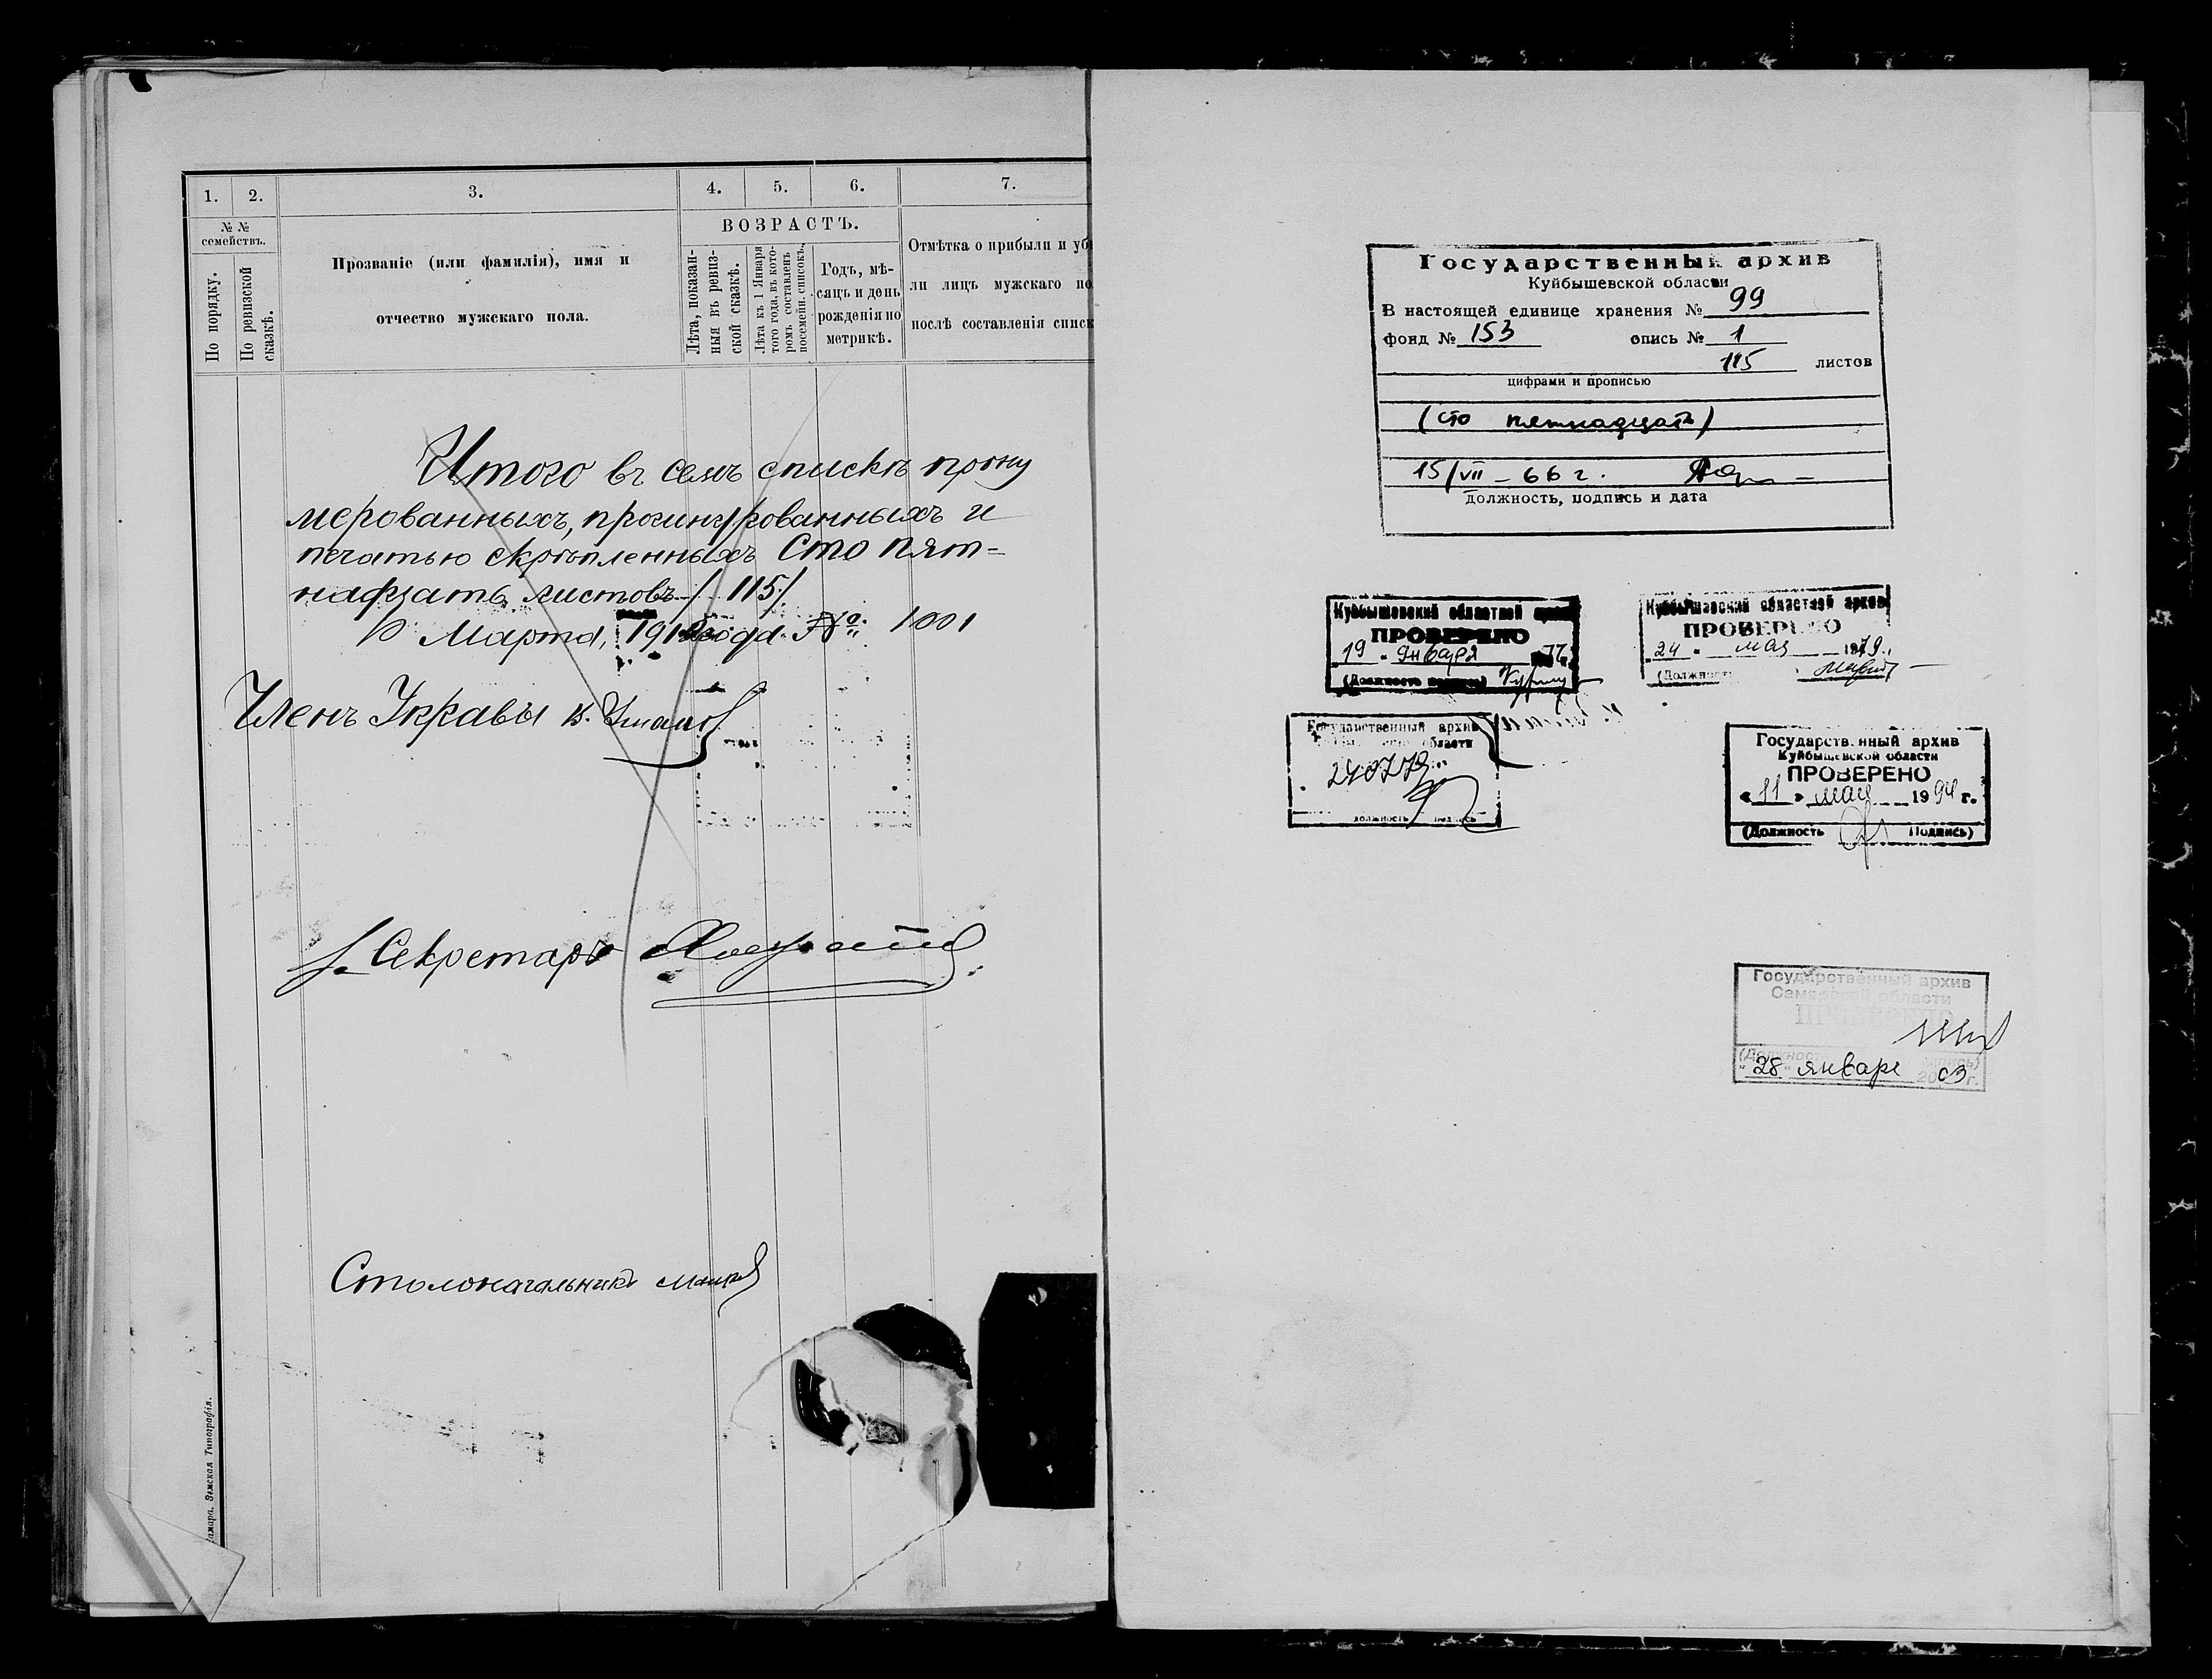 1. 2. 3. 4. 5. 6. 7.
№ № семействъ.
По порядку.
По ревизской сказкѣ.
Прозваніе (или фамилія), имя и
отчество мужскаго пола.
ВОЗРАСТЪ.
Лѣта, показан-
ныя въ ревиз-
ской сказкѣ.
Лѣта къ 1 Января
того года, въ кото-
ромъ составленъ
посемейн. списокъ.
Годъ, мѣ-
сяцъ и день
рожденія по
метрикѣ.
Отмѣтка о прибыли и уб
ли лицъ мужскаго по
послѣ составленія списк
Итого въ семъ спискѣ прону
мерованныхъ, прошнурованныхъ и
печатью скрѣпленныхъ сто пят=
надцать листовъ / 115 /
Марта, года. № 1001
Членъ Управы
Секретарь
Столоначальникъ
Земская Типографія.
Государственный архив
Куйбышевской области
В настоящей единице хранения № 99
фонд № 153 опись № 1
115 листов
цифрами и прописью
(сто пятнадцать)
15/VII – 66 г.
должность, подпись и дата
Куйбышевский областной архив
ПРОВЕРЕНО
19 января 77
(Должность подпись)
Куйбышевский областной архив
ПРОВЕРЕНО
24 мая 1979.
(Должность
Государственный архив
области
должность подпись
Государственный архив
Куйбышевской области
ПРОВЕРЕНО
«11» мая 1994 г.
(Должность Подпись)
Государственный архив
Самарской области
ПРОВЕРЕНО
(Должность подпись)
"28" января 2003 г.